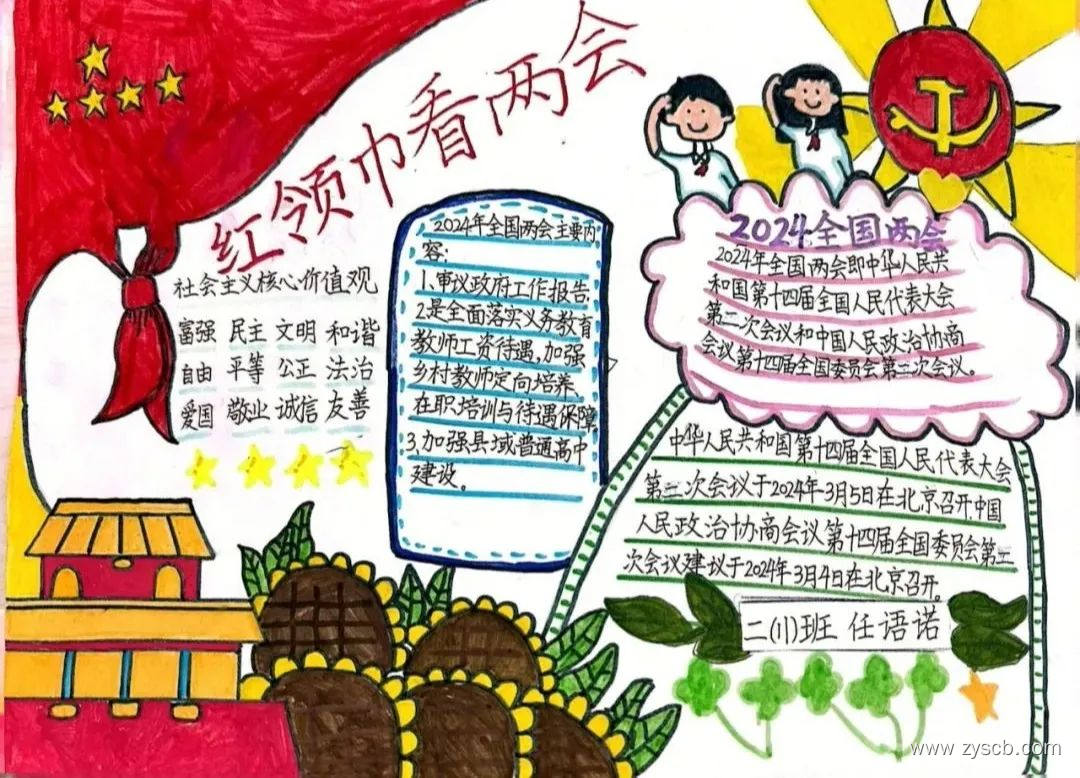 红领巾看两会
社会主义核心价值观
富强 民主 文明 和谐
自由 平等 公正 法治
爱国 敬业 诚信 友善
2024年全国两会主要内
容:
1.审议政府工作报告
2.是全面落实义务教育
教师工资待遇,加强
乡村教师定向培养、
在职培训与待遇保障
3.加强县域普通高中
建设。
2024全国两会
2024年全国两会即中华人民共
和国第十四届全国人民代表大会
第二次会议和中国人民政治协商
会议第十四届全国委员会第二次会议。
中华人民共和国第十四届全国人民代表大会
第二次会议于2024年3月5日在北京召开,中国
人民政治协商会议第十四届全国委员会第二
次会议建议于2024年3月4日在北京召开。
二(11)班 任语诺
www.zyscb.com